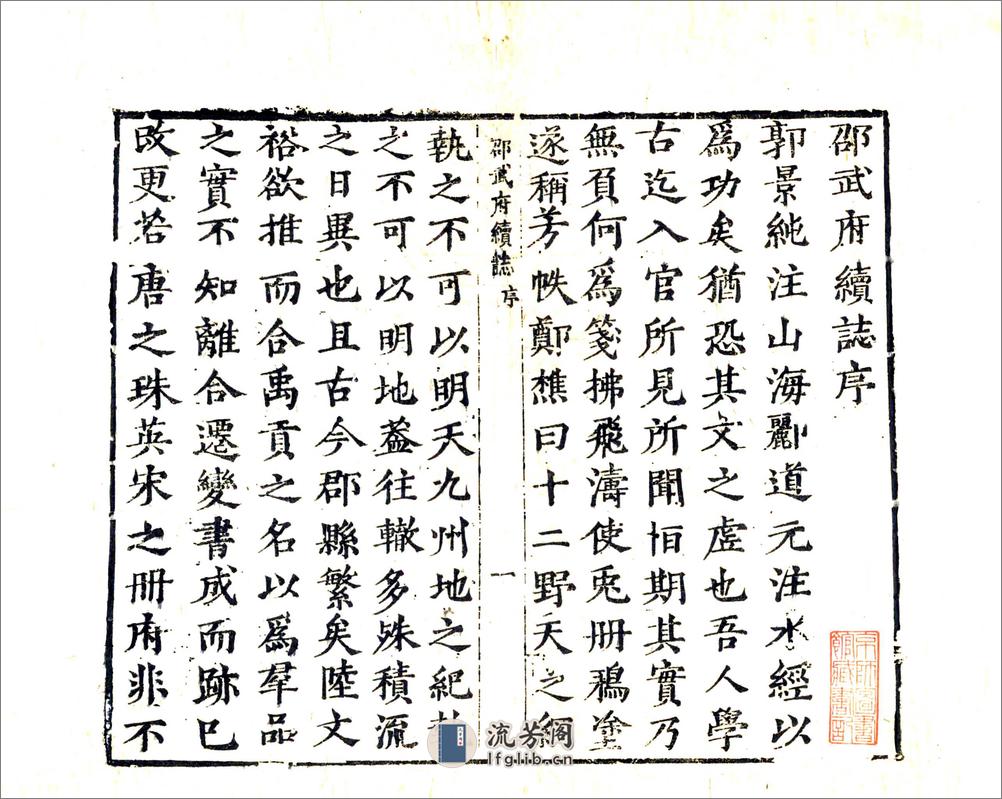 邵武府續誌序
郭景純注山海酈道元注水經以
爲功矣猶恐其文之虛也吾人學
古迄入官所見所聞恒期其實乃
無負何爲箋拂飛濤使兎冊鴉塗
遂稱芳帙鄭樵曰十二野天之紀
邵武府續誌 序
一
執之不可以明天九州地之紀執
之不可以明地葢往轍多殊積流
之日異也且古今郡縣繁矣陸文
裕欲推而合禹貢之名以爲羣品
之實不知離合遷變書成而跡巳
改更若唐之珠英宋之冊府非不
京師圖書
館藏書記
流芳阁
lfglib.cn